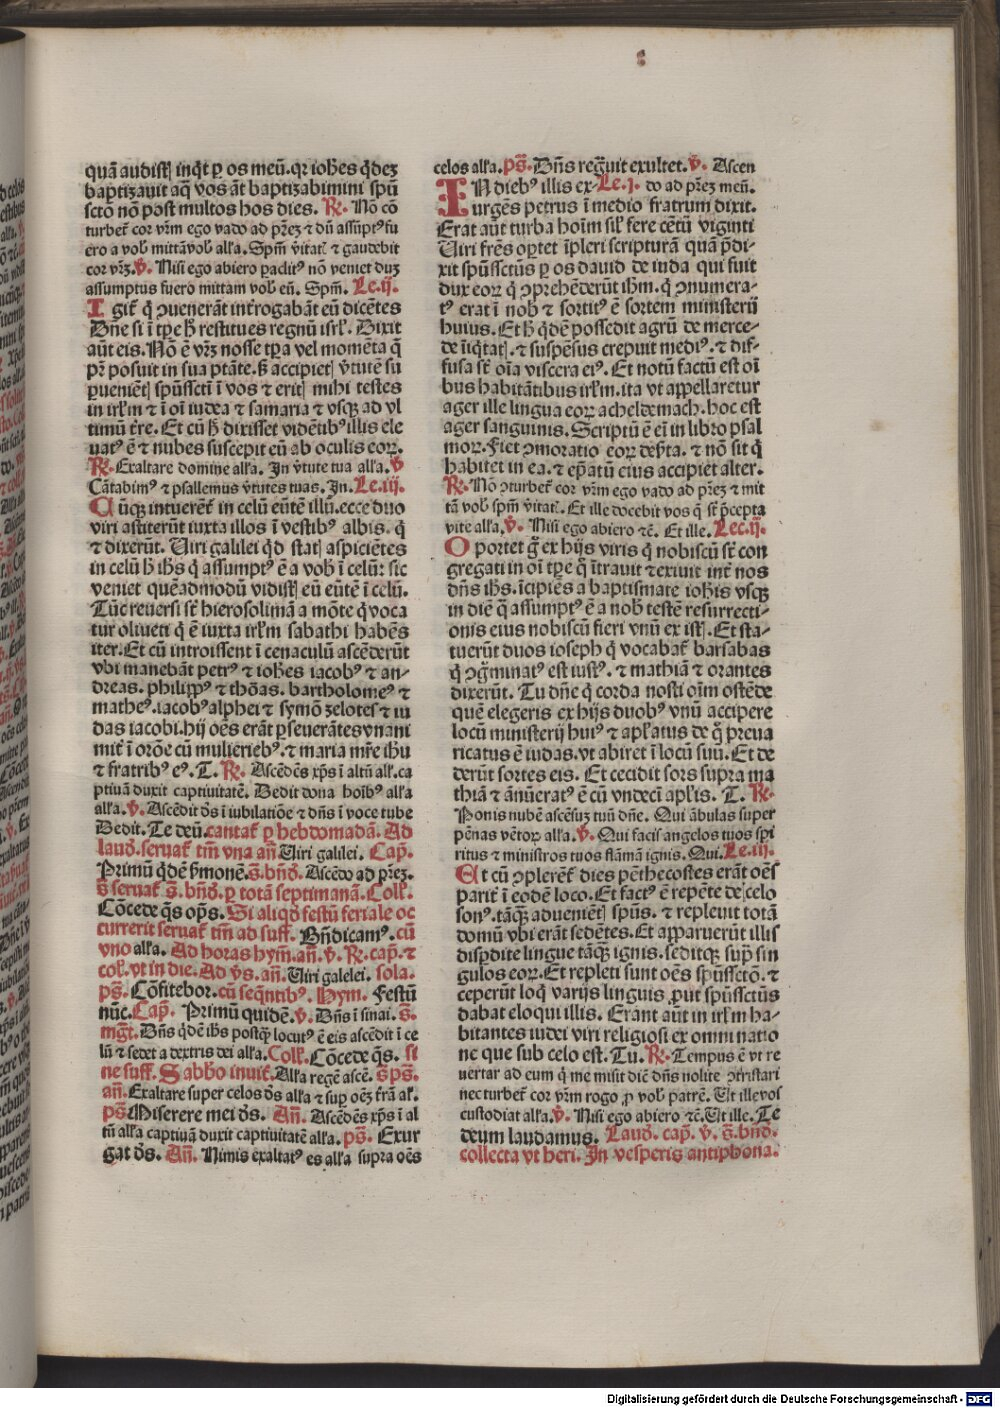 quā audistꝭ inq̇t ꝑ os meū. qꝛ ioh̄es q̇deꝫ
baptizauit aq̄ vos āt baptizabimini spū
sctō nō post multos hos dies. R̄. Nō cō
turbet᷑ cor vr̄m ego vado ad pr̄eꝫ ⁊ dū assūptꝰ fu
ero a vob̄ mittā vob̄ all̄a. Sp̄m v̄itat᷑ ⁊ gaudebit
cor vr̄ꝫ. v̄. Nisi ego abiero ꝑaclitꝰ nō veniet duꝫ
assumptus fuero mittam vob̄ eū. Sp̄m. Le. ij.
Igit᷑ q̇ ꝯuenerāt int᷑rogabāt eū dicētes
Dn̄e si ī tꝑe h̄ restitues regnū isrl̄. Dixit
aūt eis. Nō ē vr̄ꝫ nosse tꝑa vel momēta q̄
pr̄ posuit in sua ptāte. ẜ accipietꝭ v̄tutē su
ꝑuenietꝭ spūssctī ī vos ⁊ eritꝭ mihi testes
in irl̄m ⁊ ī oī iudea ⁊ samaria ⁊ vsqꝫ ad vl
timū t̄re. Et cū h̄ dixisset vidētibꝰ illis ele
uatꝰ ē ⁊ nubes suscepit eū ab oculis eoꝝ.
R̄. Exaltare domine all̄a. In v̄tute tua all̄a. v̄
Cātabimꝰ ⁊ psallemus v̄tutes tuas. In. Le. iij.
Cūqꝫ intuerēt᷑ in celū eūtē illū. ecce duo
viri astiterūt iuxta illos ī vestibꝰ albis. q̇
⁊ dixerūt. Viri galilei qͥd statꝭ aspiciētes
in celū h̄ ih̄s q̇ assumptꝰ ē a vob̄ ī celū: sic
veniet quēadmodū vidistꝭ eū eūtē ī celū.
Tūc reuersi st̄ hierosolimā a mōte q̇ voca
tur oliueti q̇ ē iuxta irl̄m sabathi habēs
iter. Et cū introissent ī cenaculū ascēderūt
vbi manebāt petrꝰ ⁊ ioh̄es iacobꝰ ⁊ an-
dreas. philippꝰ ⁊ thōas. bartholomeꝰ ⁊
matheꝰ. iacobꝰ alphei ⁊ symō zelotes ⁊ iu
das iacobi. hij oēs erāt ꝑseuerātes vnani
mit᷑ ī orōe cū mulieribꝰ. ⁊ maria mr̄e ih̄u
⁊ fratribꝰ eꝰ. T. R̄. Ascēdēs xp̄s ī altū all̄. ca
ptiuā duxit captiuitatē. Dedit dona hoībꝰ all̄a
all̄a. v̄. Ascēdit ds̄ ī iubilatiōe ⁊ dn̄s ī voce tube
Dedit. Te deū. cantat᷑ ꝑ hebdomadā. Ad
laud̄. seruat᷑ tm̄ vna an̄. Viri galilei. Cap̄.
Primū q̇dē ẜmonē. ẜ. bn̄d̄. Ascēdo ad pr̄eꝫ.
ẜ seruat᷑ ẜ. bn̄d̄. ꝑ totā septimanā. Coll̄.
Cōcede q̄s op̄s. Si aliqd̄ festū feriale oc
currerit seruat᷑ tm̄ ad suff. Bn̄dicamꝰ. cū
vno all̄a. Ad horas hym̄. an̄. v̄. R̄. cap̄. ⁊
col̄. vt in die. Ad v̄s. an̄. Viri galelei. sola.
ps̄. Cōfitebor. cū seq̄ntibꝰ. Hym̄. Festū
nūc. Cap̄. Primū quidē. v̄. Dn̄s ī sinai. ẜ.
mgt̄. Dn̄s q̇dē ih̄s postqꝫ locutꝰ ē eis ascēdit ī ce
lū ⁊ sedet a dextris dei all̄a. Coll̄. Cōcede q̄s. si
ne suff. Sabb̄o inuit᷑. All̄a regē ascē. ẜ ps̄.
an̄. Exaltare super celos ds̄ all̄a ⁊ suꝑ oēꝫ t̄rā al̄.
ps̄ Miserere mei ds̄. An̄. Ascēdēs xp̄s ī al
tū all̄a captiuā duxit captiuitatē all̄a. ps̄. Exur
gat ds̄. An̄. Nimis exaltatꝰ es all̄a supra oēs
celos all̄a. ps̄. Dn̄s reg᷑uit exultet. v̄. Ascen
IN diebꝰ illis ex- Le. j. do ad pr̄eꝫ meū.
urgēs petrus ī medio fratrum dixit.
Erat aūt turba hoīm sil̄ fere cētū viginti
Viri fr̄es oꝑtet īpleri scripturā quā p̄di-
xit spūssctūs ꝑ os dauid de iuda qui fuit
dux eoꝝ q̇ ꝯprehēderūt ih̄m. q̇ ꝯnumera-
tꝰ erat ī nob̄ ⁊ sortitꝰ ē sortem ministerij
huius. Et h̄ q̇dē possedit agrū de merce-
de īiq̇tatꝭ. ⁊ suspēsus crepuit mediꝰ. ⁊ dif-
fusa st̄ oīa viscera eiꝰ. Et notū factū est oī
bus habitātibus irl̄m. ita vt appellaretur
ager ille lingua eoꝝ acheldemach. hoc est
ager sanguinis. Scriptū ē eī in libro psal
moꝝ. Fiet ꝯmoratio eoꝝ des̄ta. ⁊ nō sit q̇
habitet in ea. ⁊ ep̄atū eius accipiet alter.
R̄. Nō ꝯturbet᷑ cor vr̄m ego vado ad pr̄eꝫ ⁊ mit
tā vob̄ sp̄m v̄itatꝭ. Et ille docebit vos q̄ st̄ p̄cepta
vite all̄a. v̄. Nisi ego abiero ⁊c̄. Et ille. Lec. ij.
Oportet g̊ ex hijs viris q̇ nobiscū st̄ con
gregati in oī tꝑe q̊ ītrauit ⁊ exiuit int᷑ nos
dn̄s ih̄s. īcipiēs a baptismate ioh̄is vsqꝫ
in diē q̄ assumptꝰ ē a nob̄ testē resurrecti-
onis eius nobiscū fieri vnū ex istꝭ. Et sta-
tuerūt duos ioseph q̇ vocabat᷑ barsabas
q̇ ꝯgͦminatꝰ est iustꝰ. ⁊ mathiā ⁊ orantes
dixerūt. Tu dn̄e q̇ corda nosti oīm ostēde
quē elegeris ex hijs duobꝰ vnū accipere
locū ministerij huiꝰ ⁊ apl̄atus de q̊ preua
ricatus ē iudas. vt abiret ī locū suū. Et de
derūt sortes eis. Et cecidit sors supra ma
thiā ⁊ ānūeratꝰ ē cū vndecī apl̄is. T. R̄.
Ponis nubē ascēsuꝫ tuū dn̄e. Qui ābulas super
pēnas vētoꝝ all̄a. v̄. Qui facis angelos tuos spi
ritus ⁊ ministros tuos flāmā ignis. Qui. Le. iij.
Et cū ꝯplerēt᷑ dies pēthecostes erāt oēs
parit᷑ ī eodē loco. Et factꝰ ē repēte de celo
sonꝰ. tāqꝫ aduenietꝭ spūs. ⁊ repleuit totā
domū vbi erāt sedētes. Et apparuerūt illis
disꝑtite lingue tāqꝫ ignis. seditqꝫ supͣ sin
gulos eoꝝ. Et repleti sunt oēs spūssctō. ⁊
ceperūt loq̇ varijs linguis ꝓut spūssctūs
dabat eloqui illis. Erant aūt in irl̄m ha-
bitantes iudei viri religiosi ex omni natio
ne que sub celo est. Tu. R̄. Tempus ē vt re
uertar ad eum q̇ me misit diē dn̄s nolite ꝯtristari
nec turbet᷑ cor vr̄m rogo ꝓ vob̄ patrē. Vt ille vos
custodiat all̄a. v̄. Nisi ego abiero ⁊c̄. Vt ille. Te
deum laudamus. Laud̄. cap̄. v̄. ẜ. bn̄d̄.
collecta vt heri. In vesperis antiphona.
Digitalisierung gefördert durch die Deutsche Forschungsgemeinschaft - DFG